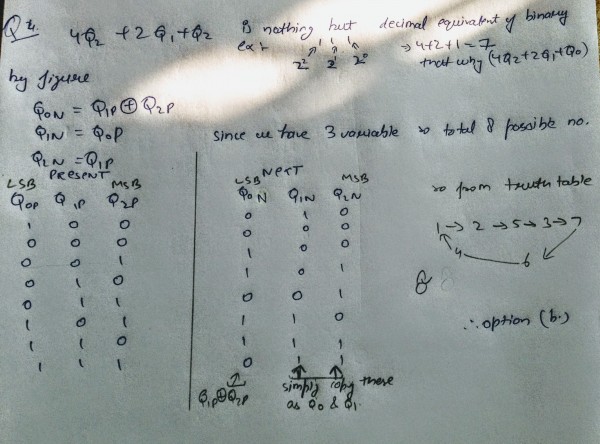 Q4. 4Q2 + 2Q1 + Q2 is nothing but decimal equivalent of binary
ex:- 1 1 1 → 4+2+1 = 7
2² 2¹ 2⁰ that why (4Q2+2Q1+Q0)
by figure
Q0N = Q1P ⊕ Q2P
Q1N = Q0P
Q2N = Q1P
since we have 3 variable so total 8 possible no.
PRESENT
LSB MSB
Q0P Q1P Q2P
1 0 0
0 0 0
0 1 0
0 0 1
1 1 0
0 1 1
1 0 1
1 1 1
NEXT
LSB MSB
Q0N Q1N Q2N
0 1 0
0 0 0
1 0 1
1 0 0
1 1 1
0 0 1
1 1 0
0 1 1
Q1P⊕Q2P simply copy these
as Q0 & Q1.
so from truth table
1 → 2 → 5 → 3 → 7
4 6
∴ option (b.)